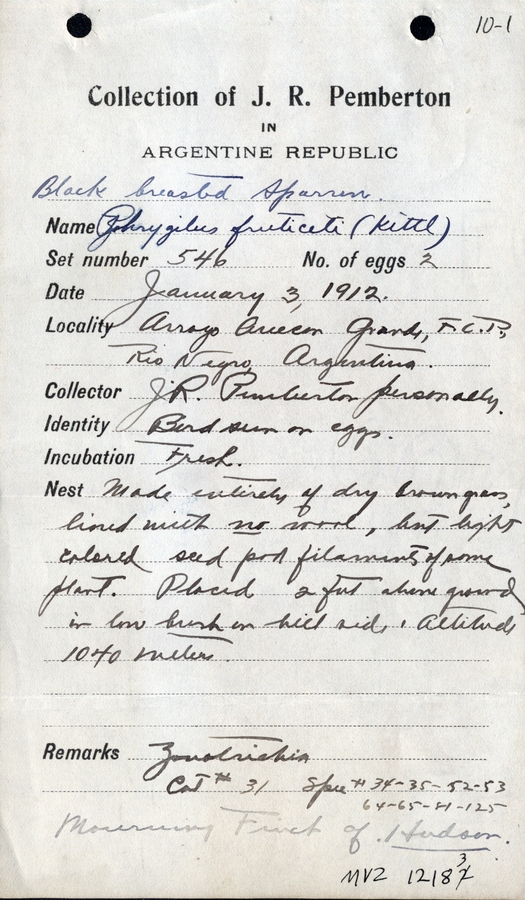 10-1
Collection of J. R. Pemberton
IN
ARGENTINE REPUBLIC
Black breasted Sparrow.
Name Phrygilus fruticeti (Kittl)
Set number 546 No. of eggs 2
Date January 3, 1912.
Locality Arroyo Anecon Grande, F.C.P.,
Rio Negro, Argentina.
Collector J.R. Pemberton personally.
Identity Bird seen on eggs.
Incubation Fresh.
Nest Made entirely of dry brown grass,
lined with no wool, but light
colored seed pod filaments of some
plant. Placed 2 feet above ground
in low bush on hill side. Altitude
1040 meters.
Remarks Zonotrichia
Cat # 31 Spec # 34-35-52-53
64-65-81-125
Mourning Finch of Hudson.
MVZ 12183